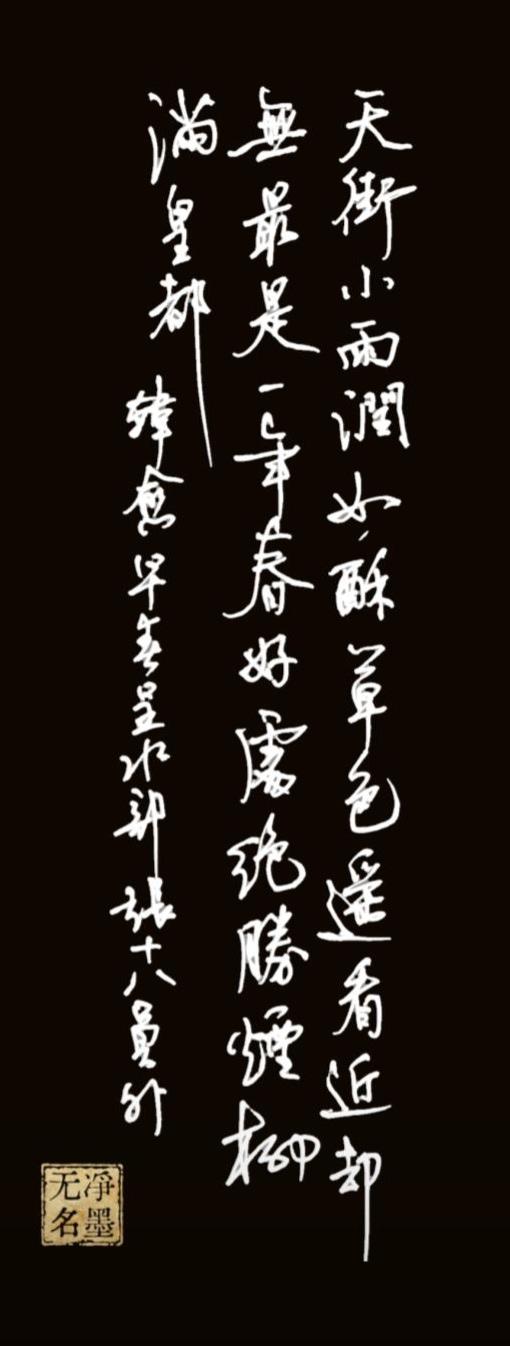 天街小雨潤如酥草色遥看近却
無最是一年春好處绝勝煙柳
满皇都
韓愈早春呈水部張十八員外
净墨
无名